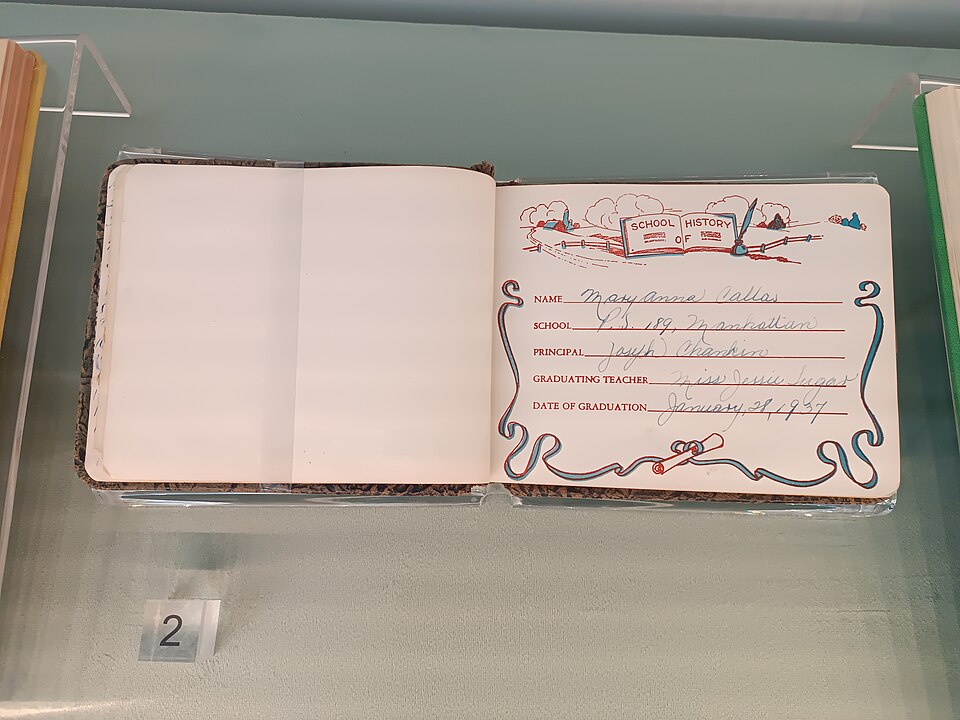 SCHOOL HISTORY
OF
NAME Mary Anna Callas
SCHOOL P.S. 189, Manhattan
PRINCIPAL Joseph Chankin
GRADUATING TEACHER Miss Jessie Sugar
DATE OF GRADUATION January, 28, 1937
2